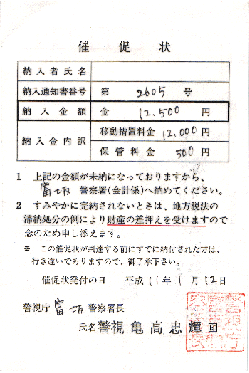 催促状
納入者氏名
納入通知書番号 第 2605 号
納入金額 金 12,500 円
納入金内訳 移動措置料金 12,000 円
保管料金 500 円
1 上記の金額が未納になっておりますから、
警察署(会計係)へ納めてください。
2 すみやかに完納されないときは、地方税法の
滞納処分の例により財産の差押えを受けますので
念のため申し添えます。
※ この催促状が到達する前にすでに納付された方は、
行き違いでありますので、御了承下さい。
催促状発付の日 平成 11年 1月12日
警視庁富坂警察署長
氏名 警視 亀高志